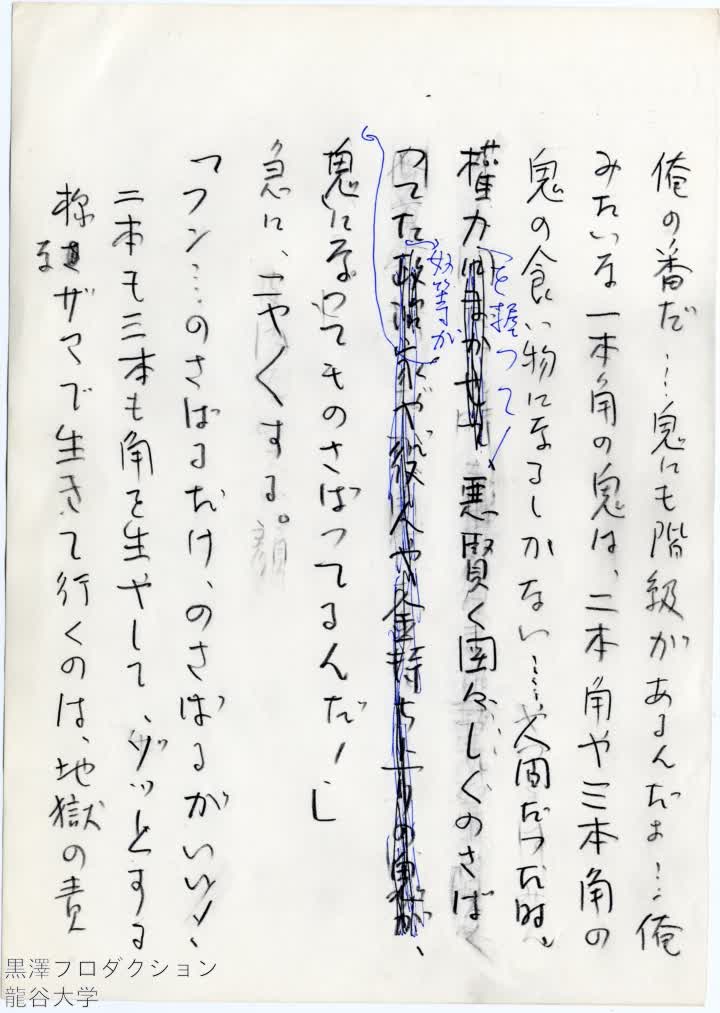 俺の番だ…鬼にも階級があるんだよ…俺
みたいな一本角の鬼は、二本角や三本角の
鬼の食い物になるしかない……人間だった時、
権力にまかせてを握って、悪賢く図々しくのさば
ってた政治家や、役人や金持ち上りの鬼が、
奴等が
鬼になってものさばってるんだ！」
急に、ニヤくする。
「フン…のさばるだけ、のさばるがいい！、
二本も三本も角を生やして、ゾッとする
様なザマで生きて行くのは、地獄の責
黒澤プロダクション
龍谷大学